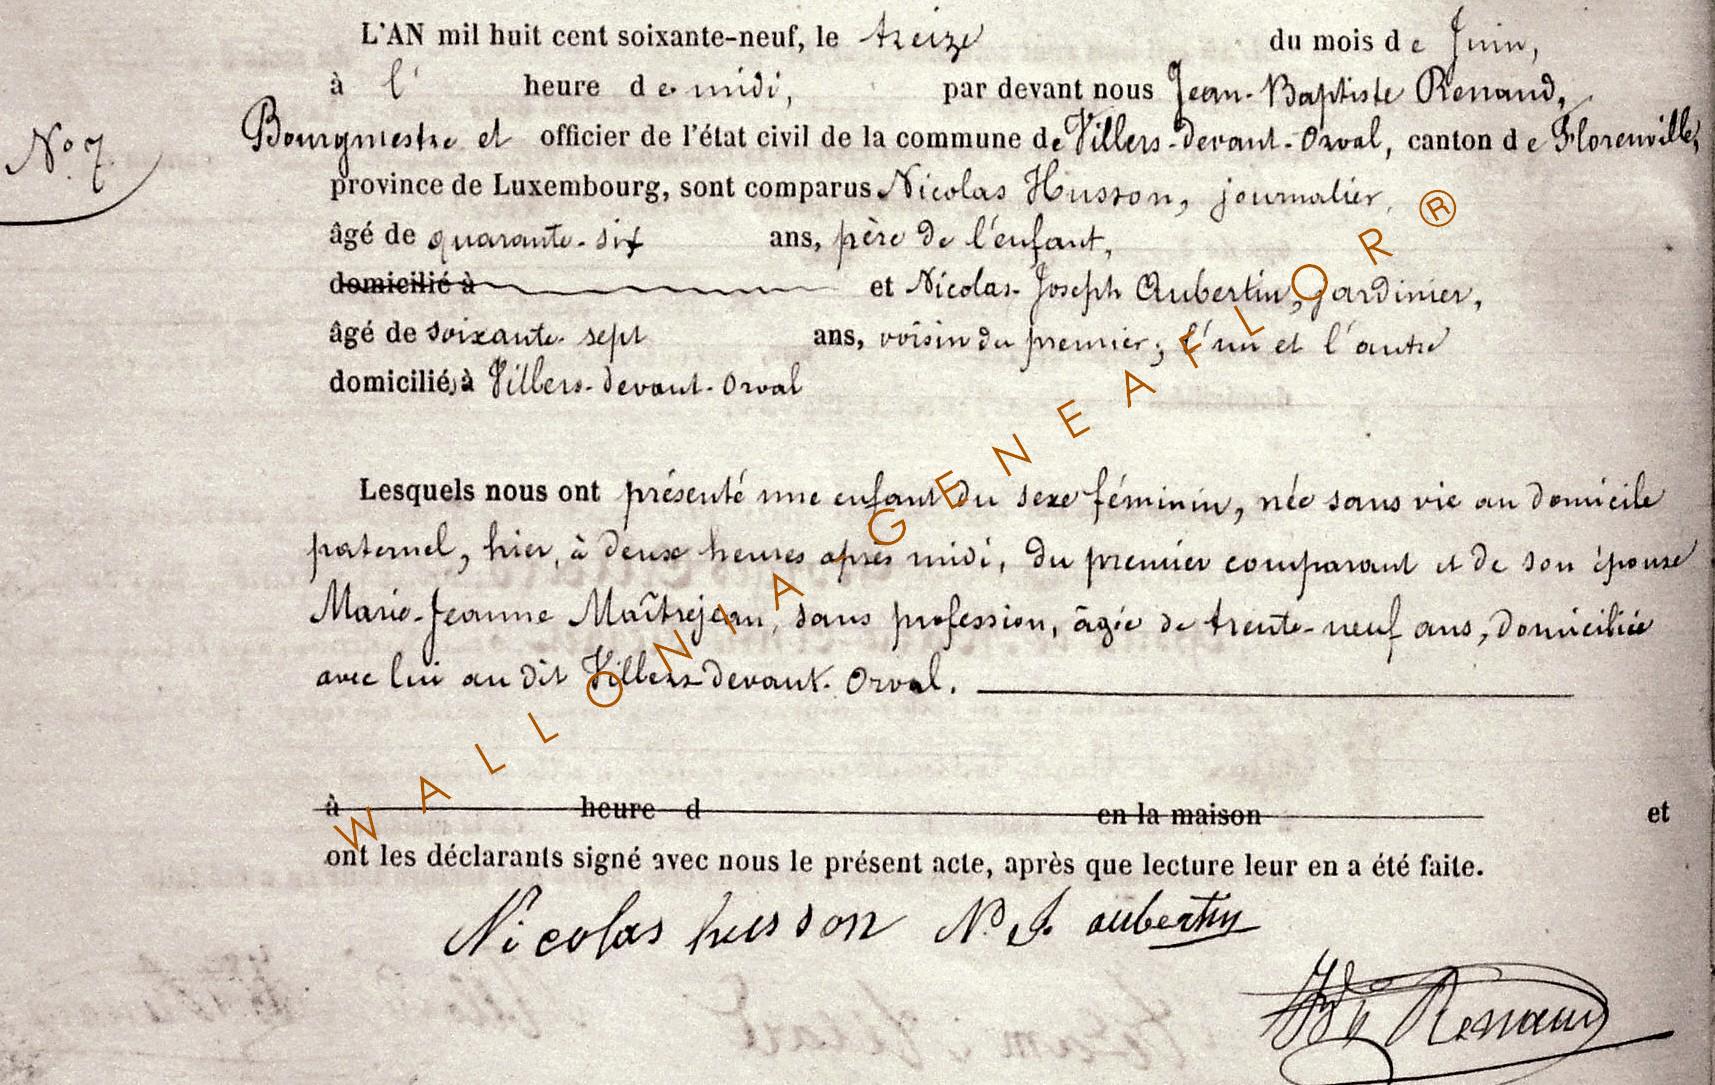 L'AN mil huit cent soixante-neuf, le treize du mois de Juin,
à l' heure de midi, par devant nous Jean-Baptiste Renaud,
N.º 7. Bourgmestre et officier de l'état civil de la commune de Villers-devant-Orval, canton de Florenville,
province de Luxembourg, sont comparus Nicolas Husson, journalier,
âgé de quarante-six ans, père de l'enfant,
domicilié à et Nicolas-Joseph Aubertin, jardinier,
âgé de soixante-sept ans, voisin du premier; l'un et l'autre
domiciliés à Villers-devant-Orval
Lesquels nous ont présenté une enfant du sexe féminin, née sans vie au domicile
paternel, hier, à deux heures après midi, du premier comparant et de son épouse
Marie-Jeanne Maîtrejean, sans profession, âgée de trente-neuf ans, domiciliée
avec lui au dit Villers-devant-Orval.
à heure d en la maison et
ont les déclarants signé avec nous le présent acte, après que lecture leur en a été faite.
Nicolas husson N. J. aubertin
JBte Renaud
WALLONIA-GENEAFLOR®